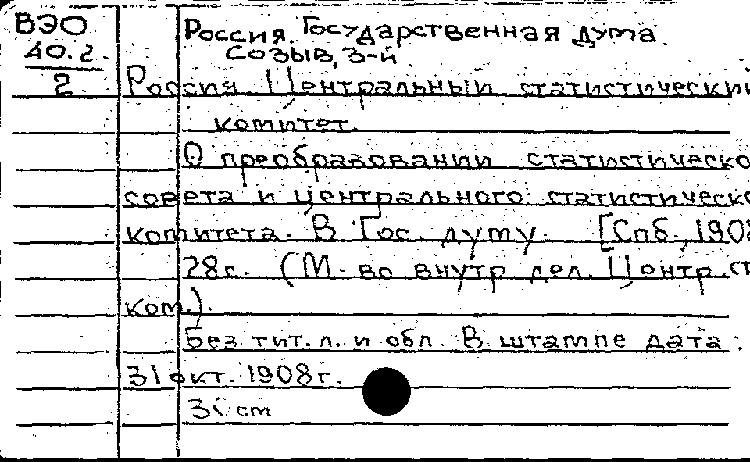 ВЭО
40.2.
2
Россия. Государственная дума.
Созыв, 3-й
Россия. Центральный статистический
комитет.
О преобразовании статистическо
совета и Центрального статистическо
комитета. В Гос. думу. [Спб., 1908
28с. (М-во внутр дел. Центр. ст
ком.).
Без тит. л. и обл. В штампе дата:
31 окт. 1908г.
см